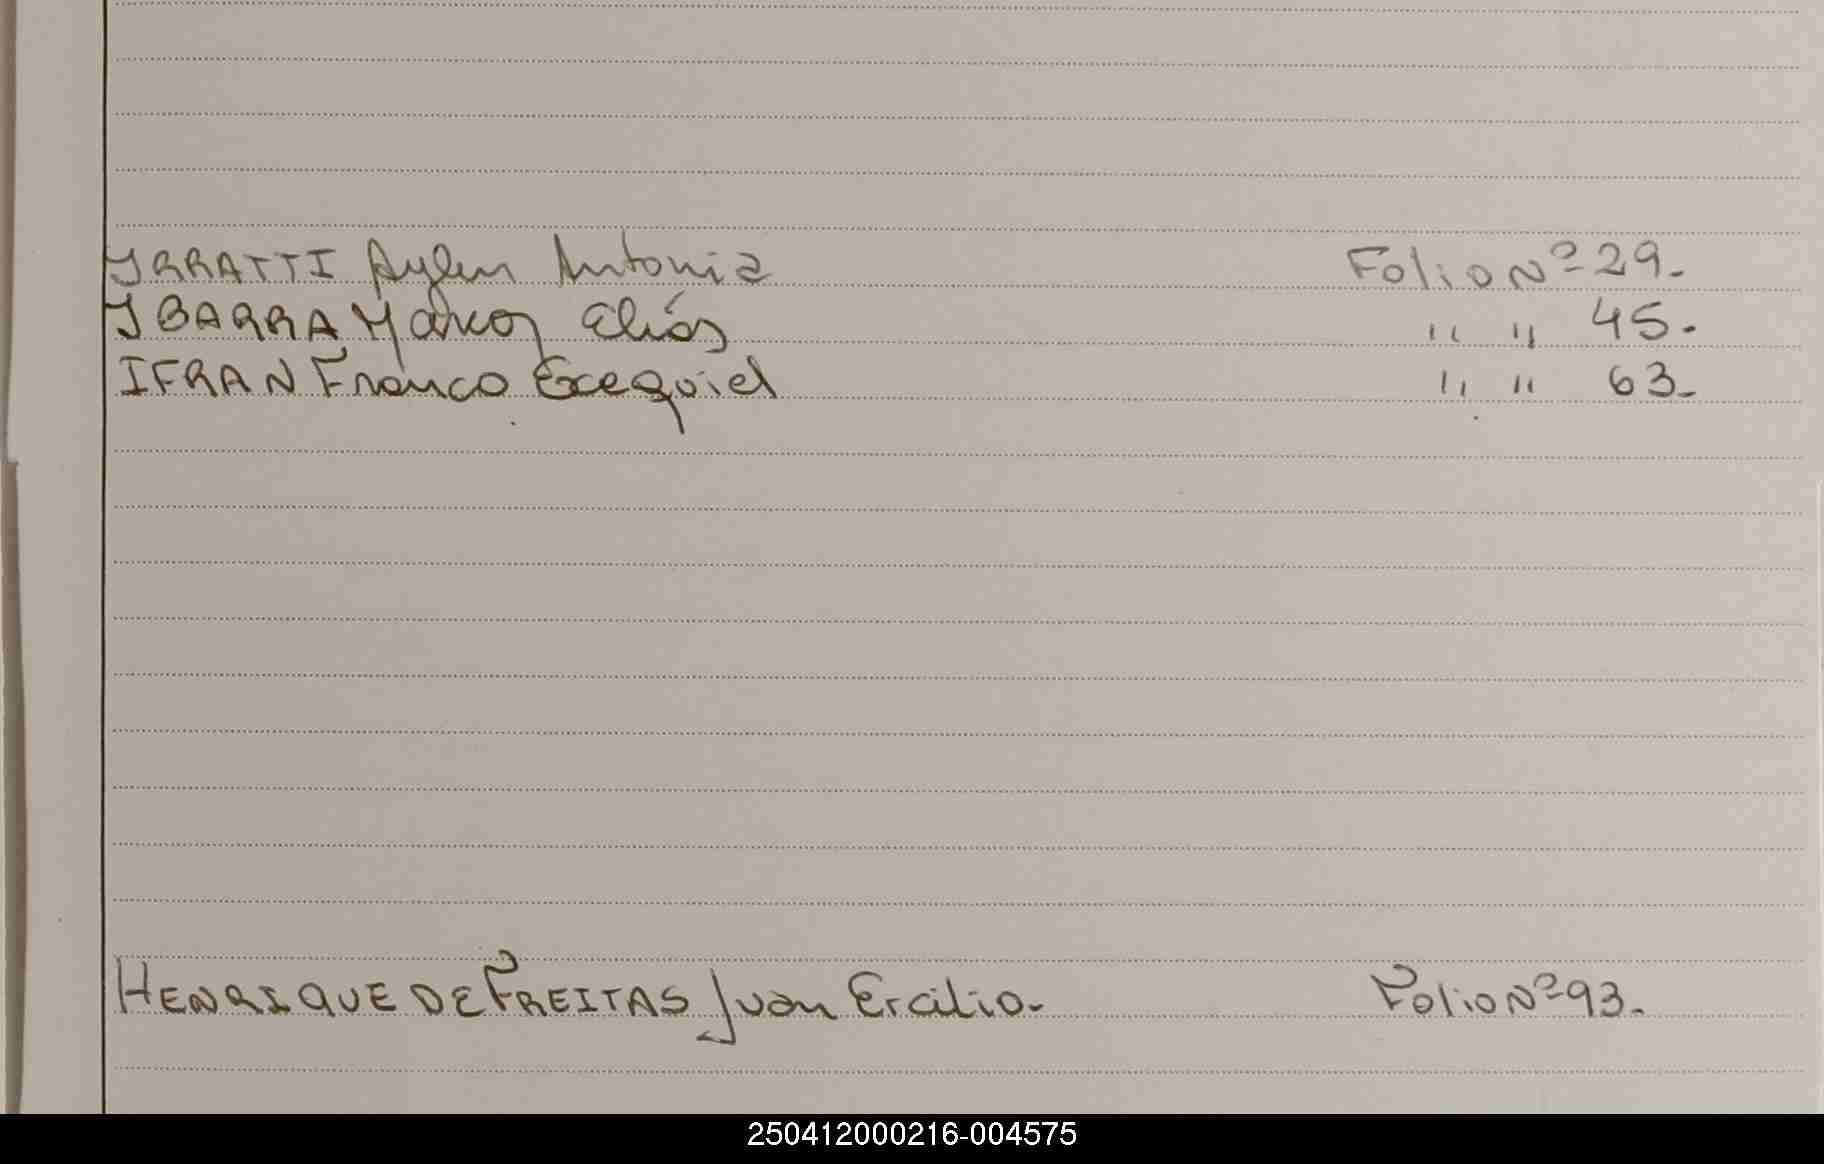 IRRATTI Aylen Antonia Folio Nº 29.
IBARRA Marcos Elías " " 45.
IFRAN Franco Exequiel " " 63.
HENRIQUE DE FREITAS Juan Ercilio. Folio Nº 93.
250412000216-004575